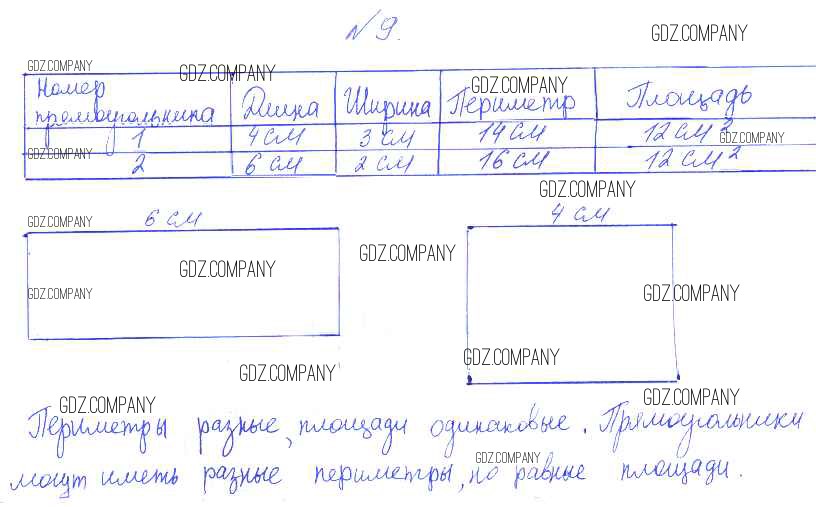 № 9.
GDZ.COMPANY
GDZ.COMPANY GDZ.COMPANY GDZ.COMPANY
Номер прямоугольника Длина Ширина Периметр Площадь
1 4 см 3 см 14 см 12 см²
GDZ.COMPANY GDZ.COMPANY
2 6 см 2 см 16 см 12 см²
GDZ.COMPANY
GDZ.COMPANY 6 см 4 см
GDZ.COMPANY
GDZ.COMPANY
GDZ.COMPANY GDZ.COMPANY
GDZ.COMPANY
GDZ.COMPANY
GDZ.COMPANY GDZ.COMPANY
Периметры разные, площади одинаковые. Прямоугольники
GDZ.COMPANY
могут иметь разные периметры, но равные площади.